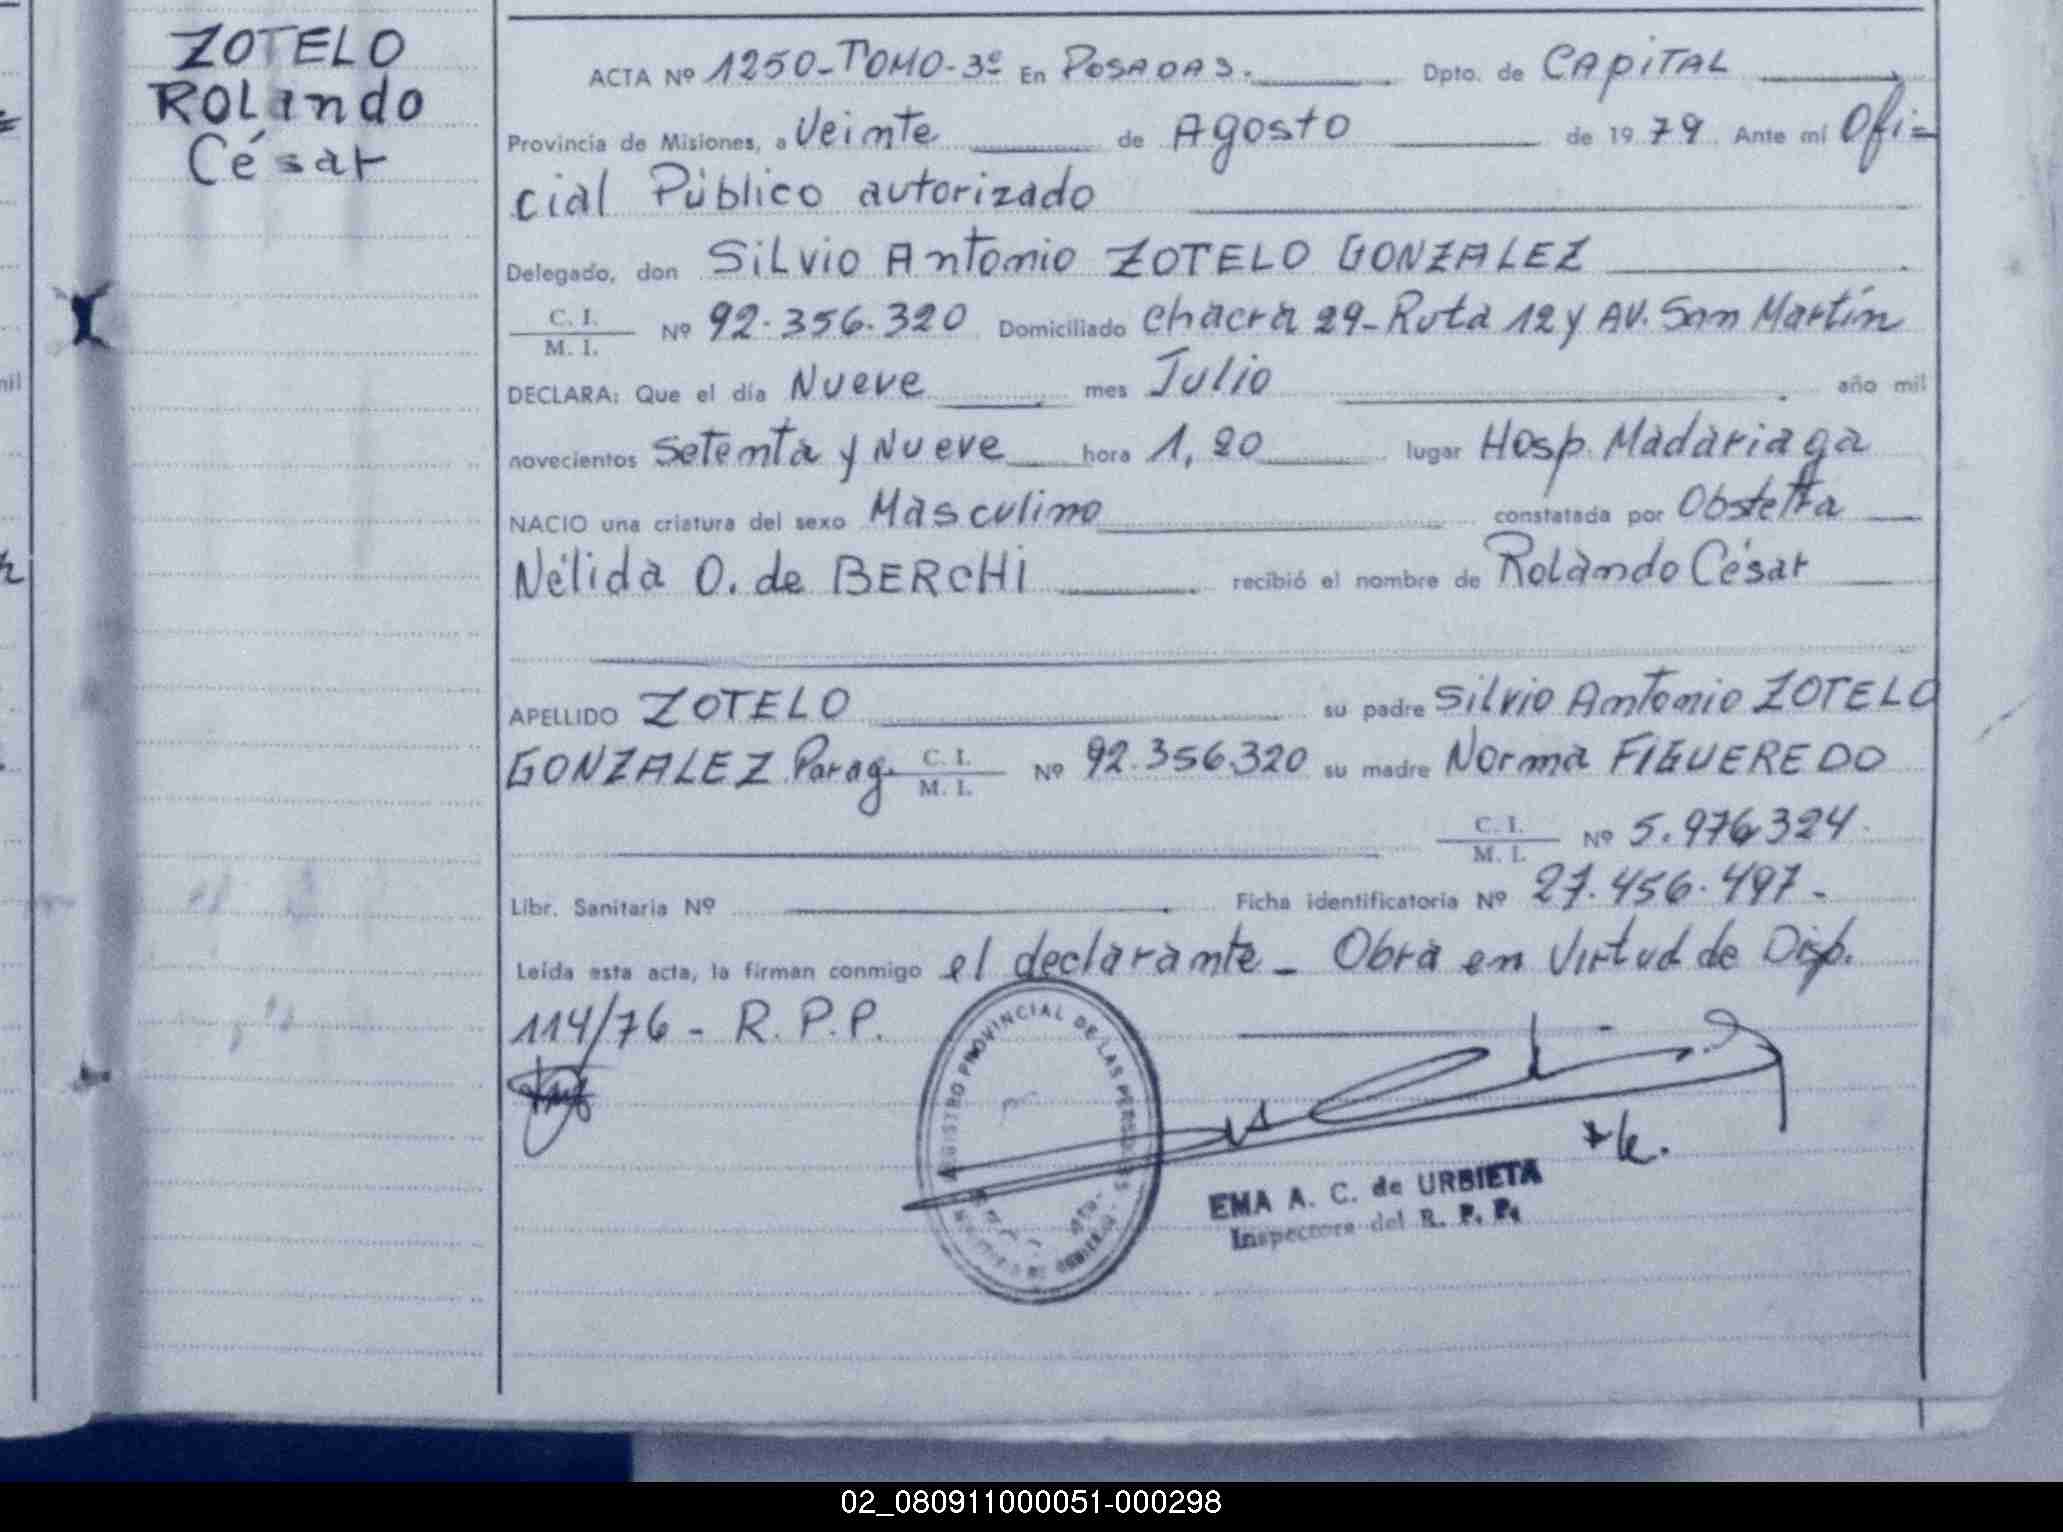 ZOTELO
ROLando
César
ACTA Nº 1250-TOMO-3º En POSADAS. Dpto. de CAPITAL
Provincia de Misiones, a Veinte de Agosto de 1979 Ante mí Ofi=
cial Público autorizado
Delegado, don Silvio Antonio ZOTELO GONZALEZ
C. I.
M. I. Nº 92.356.320 Domiciliado chacra 29-Ruta 12 y AV. San Martín
DECLARA: Que el día Nueve mes Julio año mil
novecientos Setenta y Nueve hora 1,20 lugar Hosp. Madariaga
NACIO una criatura del sexo Masculino constatada por Obstetra
Nélida O. de BERCHI recibió el nombre de Rolando César
APELLIDO ZOTELO su padre Silvio Antonio ZOTELO
GONZALEZ Parag. C. I. M. I. Nº 92.356.320 su madre Norma FIGUEREDO
C. I. M. I. Nº 5.976324
Libr. Sanitaria Nº Ficha identificatoria Nº 27.456.497-
Leída esta acta, la firman conmigo el declarante - Obra en Virtud de Disp.
114/76 - R.P.P.
REGISTRO PROVINCIAL DE LAS PERSONAS
EMA A. C. de URBIETA
Inspectora del R. P. P.
mil
02_080911000051-000298